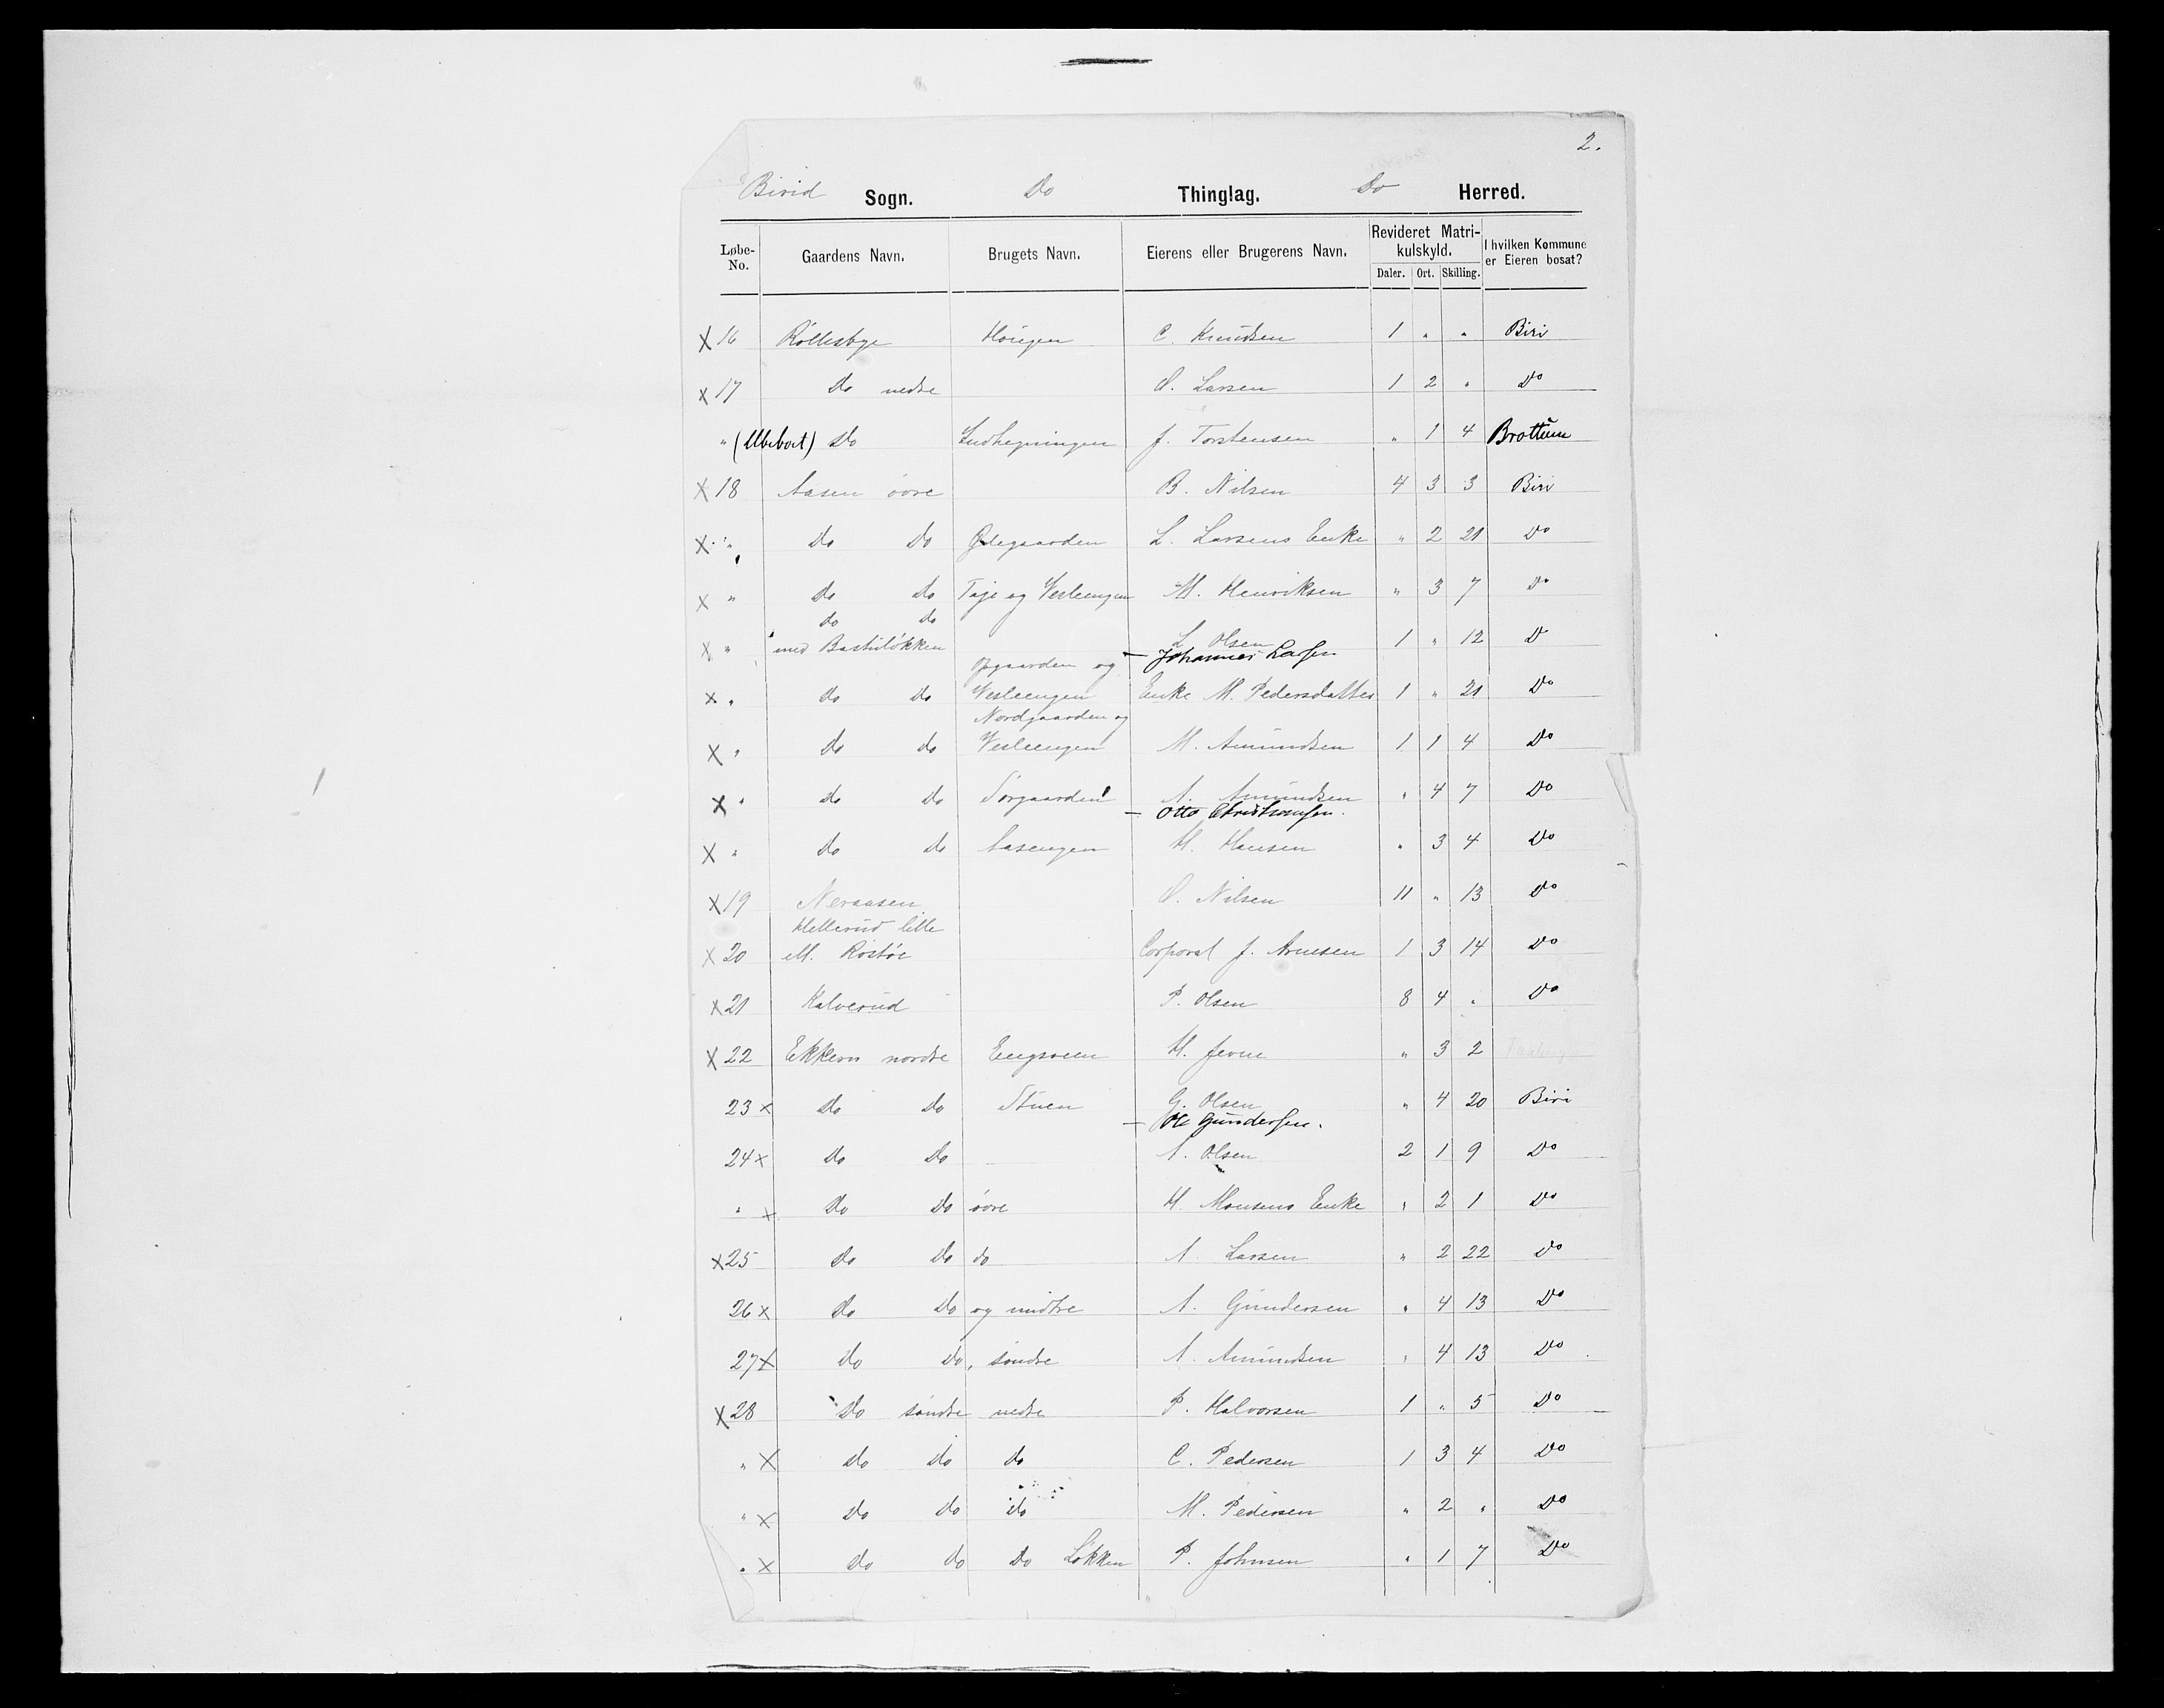 2.
Birid Sogn. Do Thinglag. Do Herred.
Løbe-No. Gaardens Navn. Brugets Navn. Eierens eller Brugerens Navn. Revideret Matrikulskyld. I hvilken Kommune er Eieren bosat?
Daler. Ort. Skilling.
X 16 Rollesbye Haugen C. Knudsen 1 " " Biri
X 17 Do nedre O. Larsen 1 2 " Do
" (Ubeboet) Do Indhegningen J. Torstensen " 1 4 Brottum
X 18 Aasen øvre B. Nilsen 4 3 3 Biri
X " Do Do L. Larsens Enke " 2 21 Do
X " Do Do Taje og Vesleengen M. Henriksen " 3 7 Do
do do
X " med Bastuløkken L Olsen 1 " 12 D
— Johannes Larsen
Opgaarden og
X " do do Vesleengen Enke M. Pedersdatter 1 " 21 Do
Nordgaarden og
X " do do Vesleengen M. Amundsen 1 1 4 Do
X " do do Sørgaarden A. Amundsen " 4 7 Do
— Otto Christiansen.
X " do do Aasengen H. Hansen " 3 4 Do
X 19 Neraasen O. Nilsen 11 " 13 Do
Hellerud lille
X 20 M. Rostøe Corporal J. Arnesen 1 3 14 Do
X 21 Kalverud P. Olsen 8 4 " Do
X 22 Ekkern nordre Engsveen H. Jevne " 3 2
23 X Do Do Stuen G. Olsen " 4 20 Biri
— Ole Gundersen.
24 X do Do A. Olsen 2 1 9 Do
" X Do Do øvre H. Monsens Enke " 2 1 Do
X 25 Do Do do A. Larsen " 2 22 Do
26 X Do Do og midtre A. Gundersen " 4 13 Do
27 X Do Do, søndre A. Amundsen " 4 13 Do
X 28 Do søndre nedre P. Halvorsen 1 " 5 Do
" X do do do C. Pedersen 1 3 4 Do
" X do do do M. Pedersen " 2 " Do
" X do do Do Løkken P. Johnsen " 1 7 Do